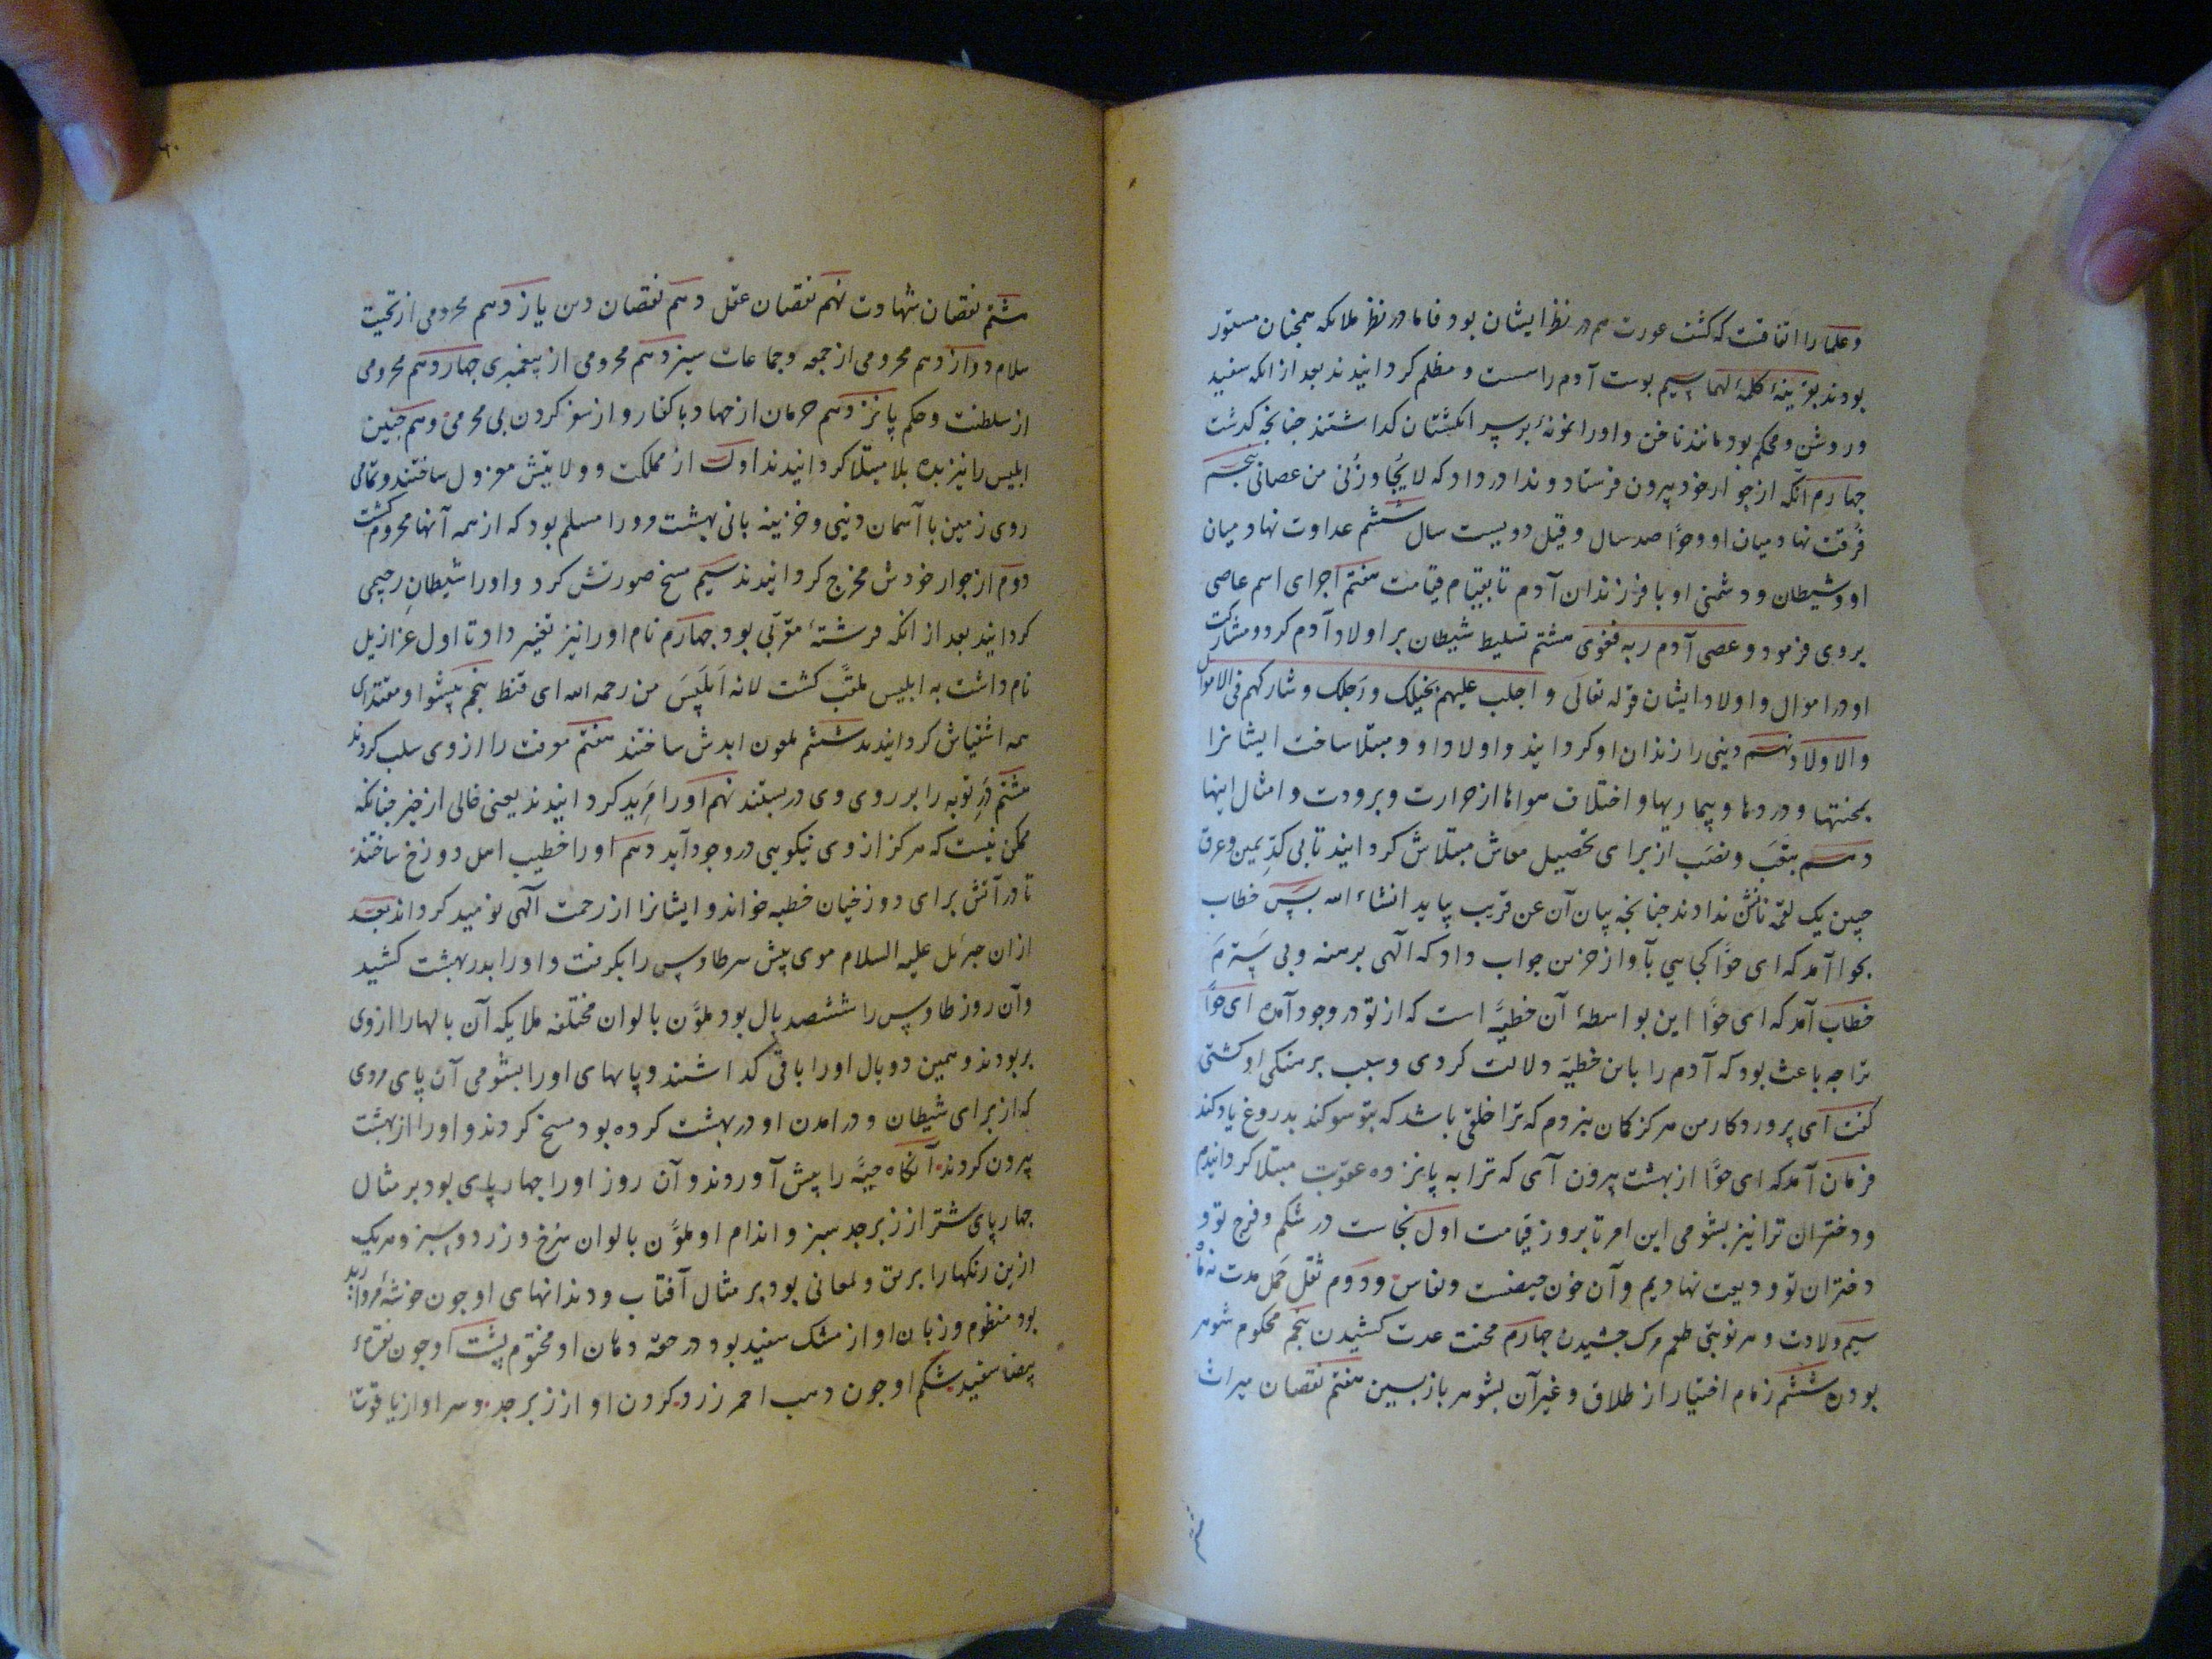 و علما را اتفاقست که کشف عورت هم در نظر ایشان بود فاما در نظر ملائکه همچنان مستور
بودند بقرینهٔ کلمهٔ لهما سیم پوست آدم را سست و مظلم کردانیدند بعد از انکه سفید
و روشن و محکم بود مانند ناخن و او را نمونهٔ بر سر انکشتان کذاشتند چنانچه کذشت
چهارم آنکه از جوار خود بیرون فرستاد و ندا در داد که لا یُجاورُنی من عصانی پنجم
فُرقت نهاد میان او و حوّا صد سال و قیل دویست سال ششم عداوت نهاد میان
او و شیطان و دشمنی او با فرزندان آدم تا بقیام قیامت هفتم اجرای اسم عاصی
بر وی فرمود و عصی آدم ربه فغوی هشتم تسلیط شیطان بر اولاد آدم کرد و مشارکت
او در اموال و اولاد ایشان قوله تعالی و اجلب علیهم بخیلک و رَجلک و شارکهم فی الاموال
والاولاد نهم دینی را زندان او کردانید و اولاد او و مبتلا ساخت ایشانرا
بمحنتها و دردها و بیماریها و اختلاف هواها از حرارت و برودت و امثال اینها
دهم بتَعَب و نصَب از برای تحصیل معاش مبتلاش کردانید تا بی کدِّ یمین و عرق
جبین یک لقمه نانش ندادند چنانچه بیان آن عن قریب بیاید انشاء الله پس خطاب
بحوا آمد که ای حوّا کجایی بآواز حزین جواب داد که الٓهی برهنه و بی سترم
خطاب آمد که ای حوّا این بواسطهٔ آن خطیّه است که از تو در وجود آمده ای حوّا
ترا چه باعث بود که آدم را باین خطیّه دلالت کردی و سبب برهنکی او کشتی
کفت آی پروردکار من هرکز کمان نبردم که ترا خلقی باشد که بتو سوکند بدروغ یاد کند
فرمان آمد که ای حوّا از بهشت بیرون آی که ترا به پانزده عقوبت مبتلا کردانیدم
و دختران ترا نیز بشومی این امر تا بروز قیامت اول نجاست در شکم و فرج تو و
دختران تو ودیعت نهادیم و آن خون حیضست و نفاس و دوم ثقل حَمل مدت نه ماه
سیم ولادت و هر نوبتی طعم مرک چشیدن چهارم محنت عدت کشیدن پنجم محکوم شوهر
بودن ششم زمام اختیار از طلاق و غیر آن بشوهر باز بسین هفتم نقصان میراث
شتم نقصان شهادت نهم نقصان عقل دهم نقصان دین یازدهم محرومی از تحیت
سلام دوازدهم محرومی از جمعه و جماعات سیزدهم محرومی از پیغمبری چهاردهم محرومی
از سلطنت و حکم پانزدهم حرمان از جهاد با کفار و از سفر کردن بی محرمی و هم چنین
ابلیس را نیز بده بلا مبتلا کردانیدند اول از مملکت و ولایتش معزول ساختند و تمامی
روی زمین با آسمان دینی و خزینه بانی بهشت او را مسلم بود که از همه آنها محروم کشت
دوم از جوار خودش مخرج کردانیدند سیم مسخ صورتش کرد و او را شیطانِ رجیمی
کردانید بعد از انکه فرشتهٔ مقربی بود چهارم نام او را نیز تغییر داد تا اول عزازیل
نام داشت به ابلیس ملقّب کشت لانه اَبلَیسَ من رحمه الله ای قنط پنجم پیشوا و مقتدای
همه اشقیاش کردانیدند ششم ملعون ابدش ساختند هفتم معرفت را از وی سلب کردند
هشتم دَرِ توبه را بر روی وی دربستند نهم او را مَرید کردانیدند یعنی خالی از خیر چنانکه
ممکن نیست که هرکز از وی نیکویی در وجود آید دهم او را خطیب اهل دوزخ ساختند
تا در آتش برای دوزخیان خطبه خواند و ایشانرا از رحمت الٓهی نومید کرداند بعد
از ان جبرئل علیه السلام موی پیش سر طاوس را بکرفت و او را بدر بهشت کشید
و آن روز طاوس را ششصد بال بود ملوَّن بالوان مختلفه ملایکه آن بالها را از وی
بربودند و همین دو بال او را باقی کذاشتند و پایهای او را بشومی آن پای مردی
که از برای شیطان و درامدن او در بهشت کرده بود مسخ کردند و او را از بهشت
بیرون کردند آنکاه حیّه را پیش آوردند و آن روز او را چهار پای بود بر مثال
چهار پای شتر از زبرجد سبز و اندام او ملوَّن بالوان سرخ و زرد و سبز و هر یک
ازین رنکها را بریق و لمعانی بود بر مثال آفتاب و دندانهای او چون خوشهٔ مروارید
بود منظوم و زبان او از مشک سفید بود در حقه دهان او مختوم پشت او چون نقرهٔ
بیضا سفید شکم او چون ذهب احمر زرد کردن او از زبرجد و سر او از یاقوت